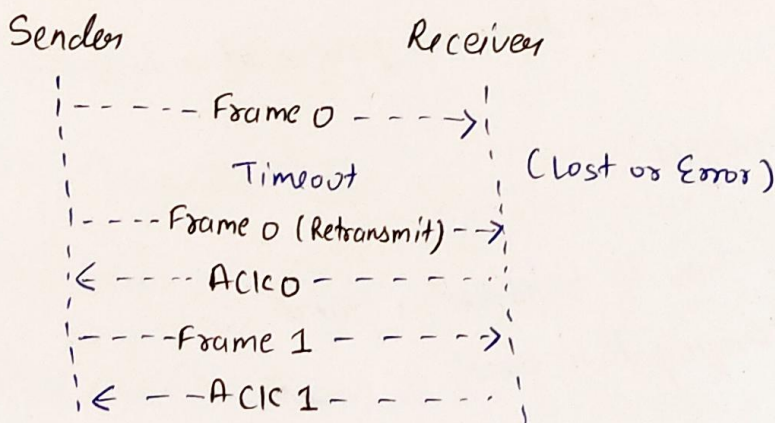 Sender Receiver
Frame 0
Timeout (Lost or Error)
Frame 0 (Retransmit)
ACK 0
Frame 1
ACK 1